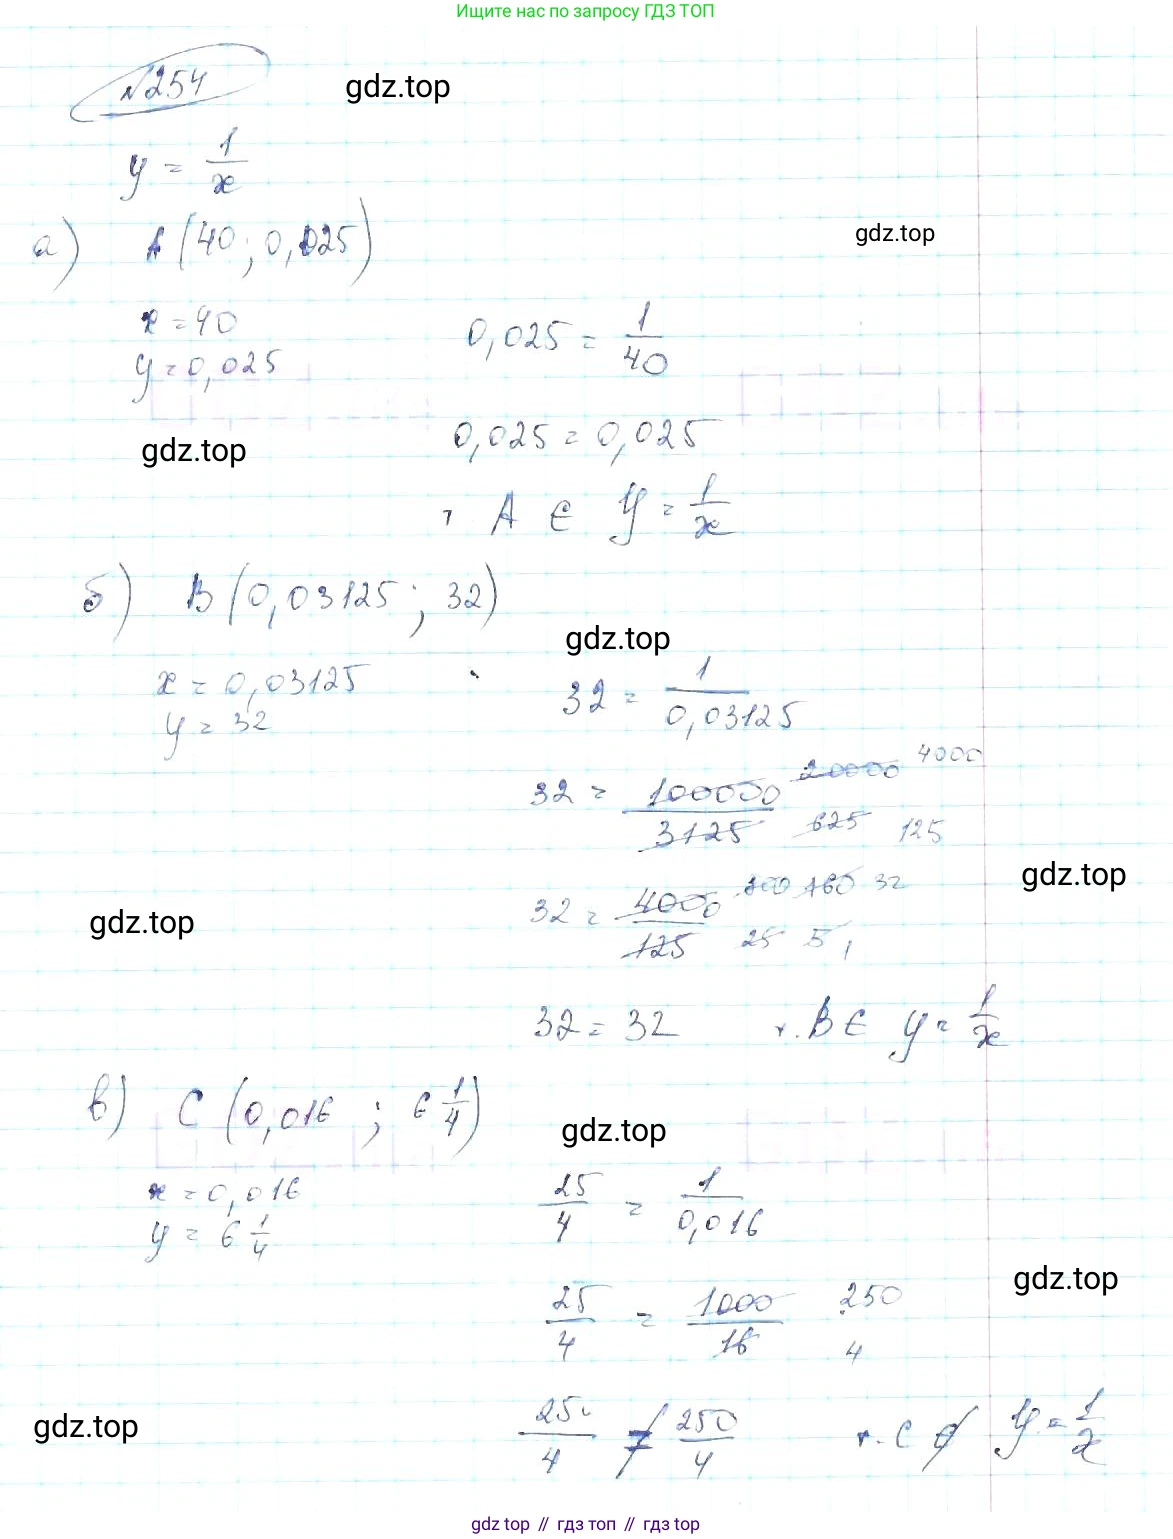 Ищите нас по запросу ГДЗ ТОП
№254
gdz.top
y = 1/x
а) A (40; 0,025)
gdz.top
x = 40
y = 0,025
0,025 = 1/40
0,025 = 0,025
gdz.top
т A ∈ y = 1/x
б) B (0,03125; 32)
gdz.top
x = 0,03125
y = 32
32 = 1/0,03125
32 = 100000/3125 20000/625 4000/125
gdz.top
32 = 4000/125 800/25 160/5 32/1
gdz.top
32 = 32 т. B ∈ y = 1/x
в) C (0,016; 6 1/4)
gdz.top
x = 0,016
y = 6 1/4
25/4 = 1/0,016
gdz.top
25/4 = 1000/16 250/4
gdz.top
25/4 ≠ 250/4 т. C ∉ y = 1/x
gdz top // гдз топ // гдз top